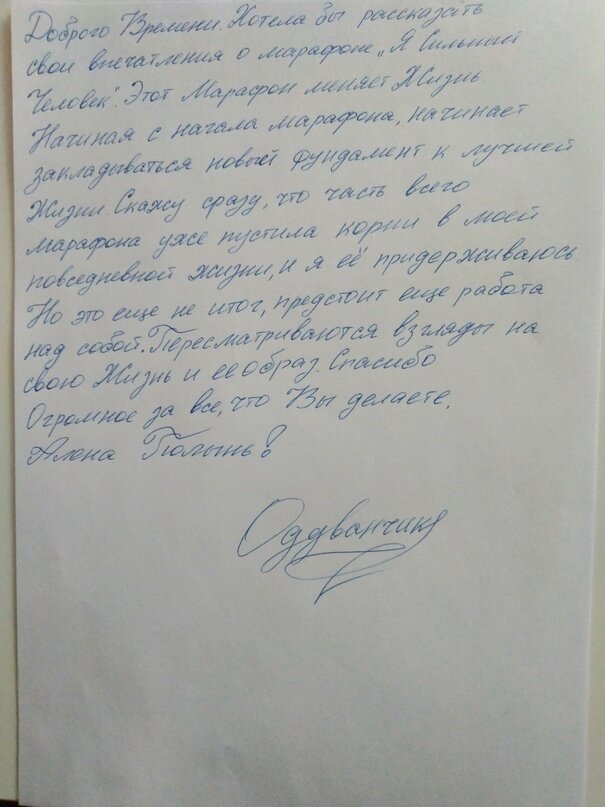 Доброго Времени. Хотела бы рассказать
свои впечатления о марафоне „Я Сильный
Человек". Этот Марафон меняет Жизнь.
Начиная с начала марафона, начинает
закладываться новый фундамент к лучшей
Жизни. Скажу сразу, что часть всего
марафона уже пустила корни в моей
повседневной жизни, и я её придерживаюсь.
Но это еще не итог, предстоит еще работа
над собой. Пересматриваются взгляды на
свою Жизнь и её образ. Спасибо
Огромное за все, что Вы делаете,
Алена Полынь!
Одуванчик